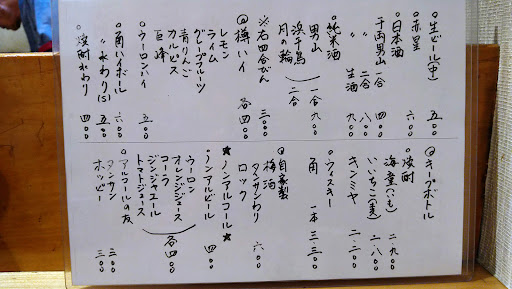 ◎生ビール(中) 五〇〇
◎赤星 六〇〇
◎日本酒
千両男山 一合 四〇〇
〃 二合 八〇〇
〃 生酒 九〇〇
◎純米酒
男山 一合 九〇〇
浜千鳥
月の輪 二合
※右四合びん 三、〇〇〇
◎樽ハイ 各四〇〇
レモン
ライム
グレープフルーツ
青りんご
カルピス
巨峰
◎ウーロンハイ 五〇〇
◎角ハイボール 六〇〇
〃 水わり(S) 五〇〇
◎焼酎わり 四〇〇
◎キープボトル
◎焼酎
海童(いも) 二、九〇〇
いいちこ(麦) 二、八〇〇
キンミヤ 二、二〇〇
◎ウィスキー
角 一本 三、三〇〇
◎自家製
梅酒
タンサンわり
ロック 六〇〇
★ノンアルコール★
◎ノンアルビール 四〇〇
◎ウーロン
オレンジジュース
コーラ
ジンジャエール
トマトジュース
各四〇〇
◎アルコールの友
タンサン 二〇〇
ホッピー 三〇〇